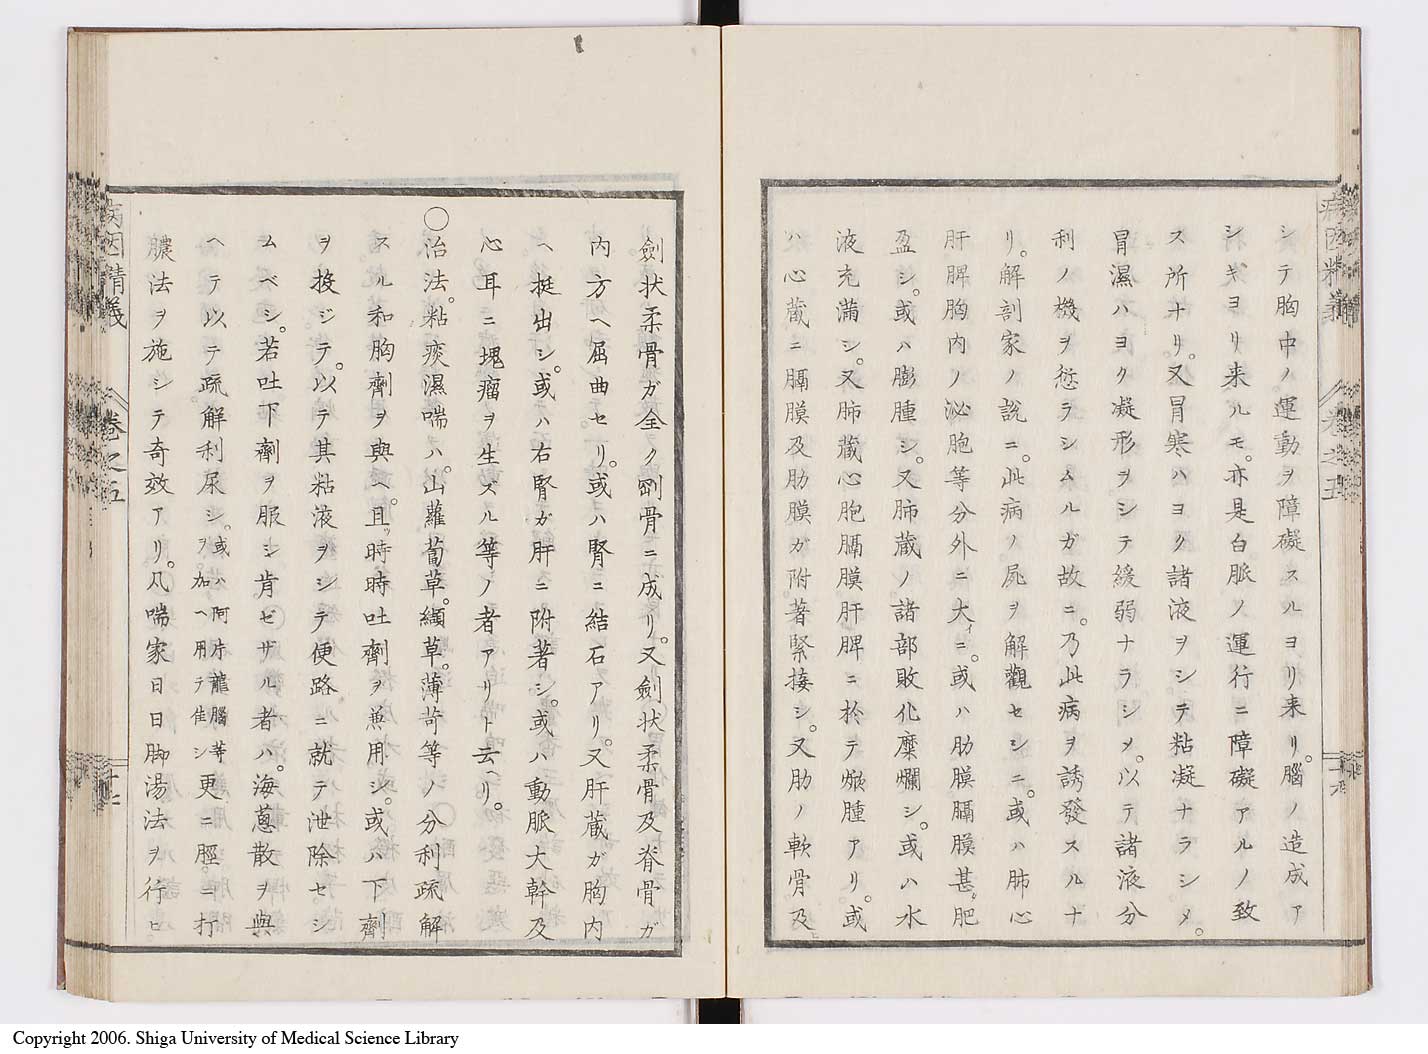 シテ胸中ノ運動ヲ障礙スルヨリ来リ。腦ノ造成ア
シギヨリ来ルモ。亦是白脈ノ運行ニ障礙アルノ致
ス所ナリ。又冒寒ハヨク諸液ヲシテ粘凝ナラシメ。
冒濕ハヨク凝形ヲシテ緩弱ナラシメ。以テ諸液分
利ノ機ヲ愆ラシムルガ故ニ。乃此病ヲ誘發スルナ
リ。解剖家ノ說ニ。此病ノ屍ヲ解觀セシニ。或ハ肺心
肝脾胸內ノ泌胞等分外ニ大イニ。或ハ肋膜膈膜甚。肥
盈シ。或ハ膨腫シ。又肺蔵ノ諸部敗化糜爛シ。或ハ水
液充滿シ。又肺蔵心胞膈膜肝脾ニ於テ焮腫アリ。或
ハ心蔵ニ膈膜及肋膜ガ附著緊接シ。又肋ノ軟骨及ヒ
劍状柔骨ガ全ク剛骨ニ成リ。又劍状柔骨及脊骨ガ
內方ヘ屈曲セリ。或ハ腎ニ結石アリ。又肝蔵ガ胸內
ヘ挺出シ。或ハ右腎ガ肝ニ附著シ。或ハ動脈大幹及
心耳ニ塊瘤ヲ生ズル等ノ者アリト云ヘリ。
○治法。粘痰濕喘ハ。山蘿蔔草。纈草。薄苛等ノ分利疏解
スル和胸劑ヲ與ヘ。且ツ時時吐劑ヲ兼用シ。或ハ下劑
ヲ投ジテ。以テ其粘液ヲシテ便路ニ就テ泄除セシ
ムベシ。若吐下劑ヲ服シ肯ゼザル者ハ。海蔥散ヲ與
ヘテ以テ疏解利尿シ。或ハ阿片龍腦等ヲ加ヘ用テ佳シ更ニ脛。ニ打
膿法ヲ施シテ奇效アリ。凡喘家日日脚湯法ヲ行ヒ
病因精義
卷之五
十七
病因精義
卷之五
十六
Copyright 2006. Shiga University of Medical Science Library